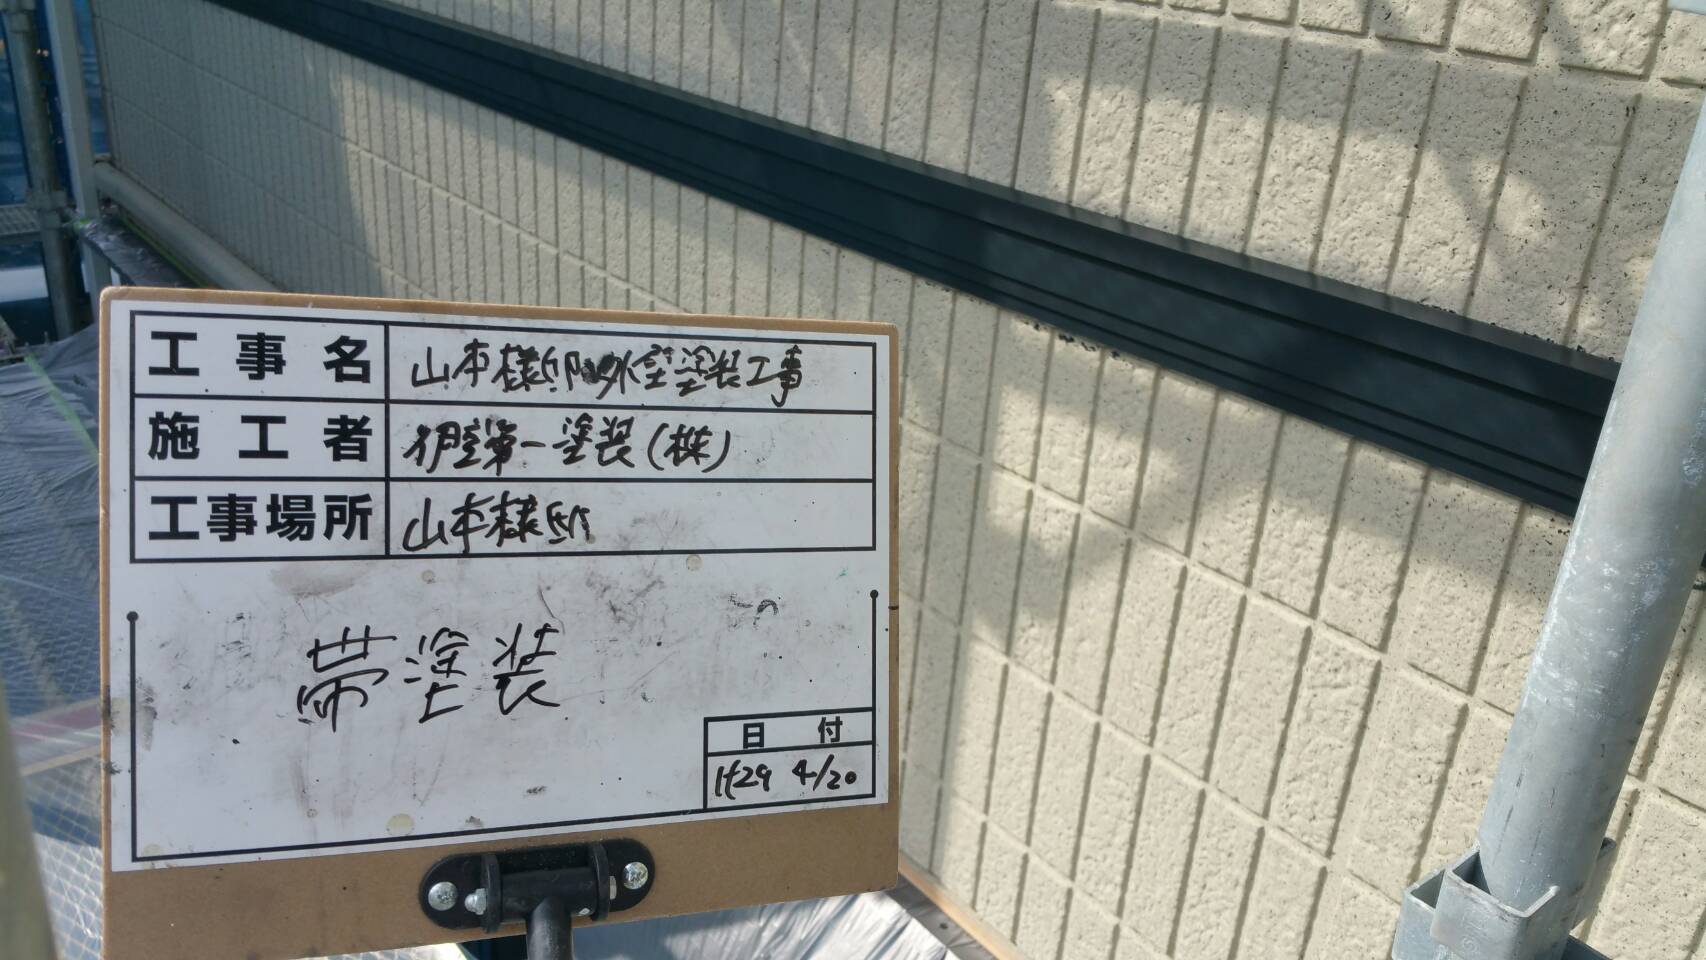 工事名 山本様邸外壁塗装工事
施工者 第一塗装(株)
工事場所 山本様邸
帯塗装
日付
H29 4/20